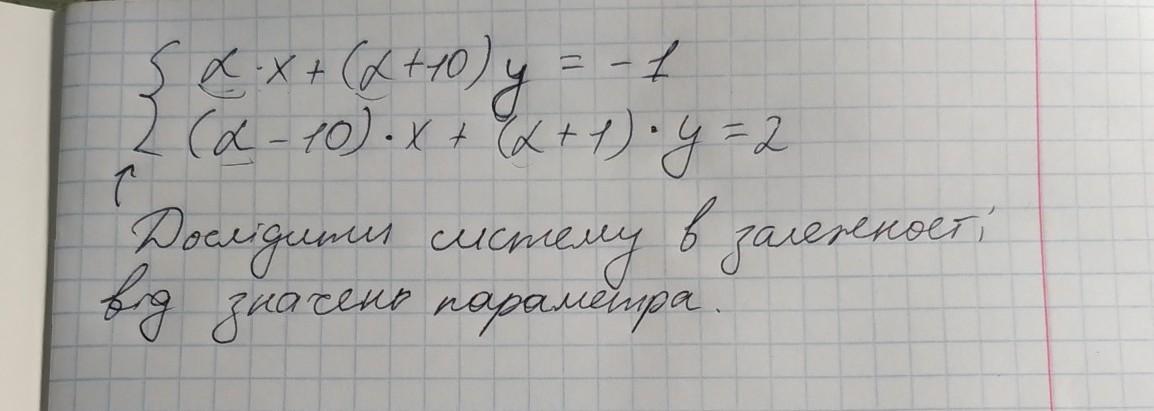 α·x+(α+10)y = -1
(α-10)·x + (α+1)·y = 2
Дослідити систему в залежності
від значень параметра.